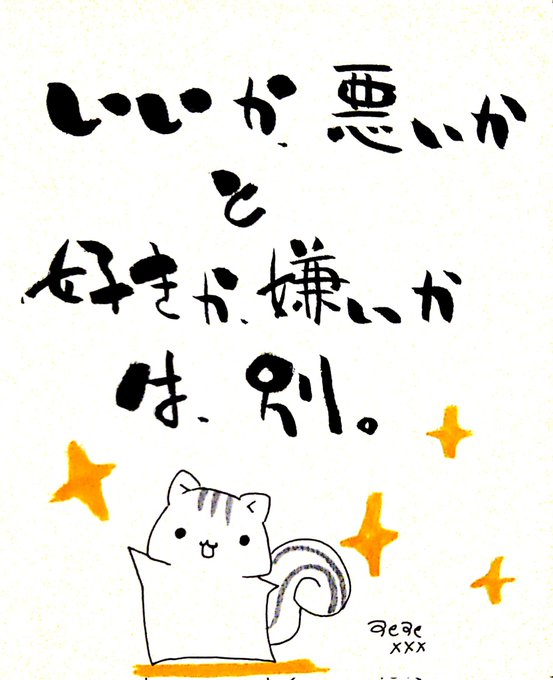 いいか、悪いか
と
好きか、嫌いか
は、別。
xxx